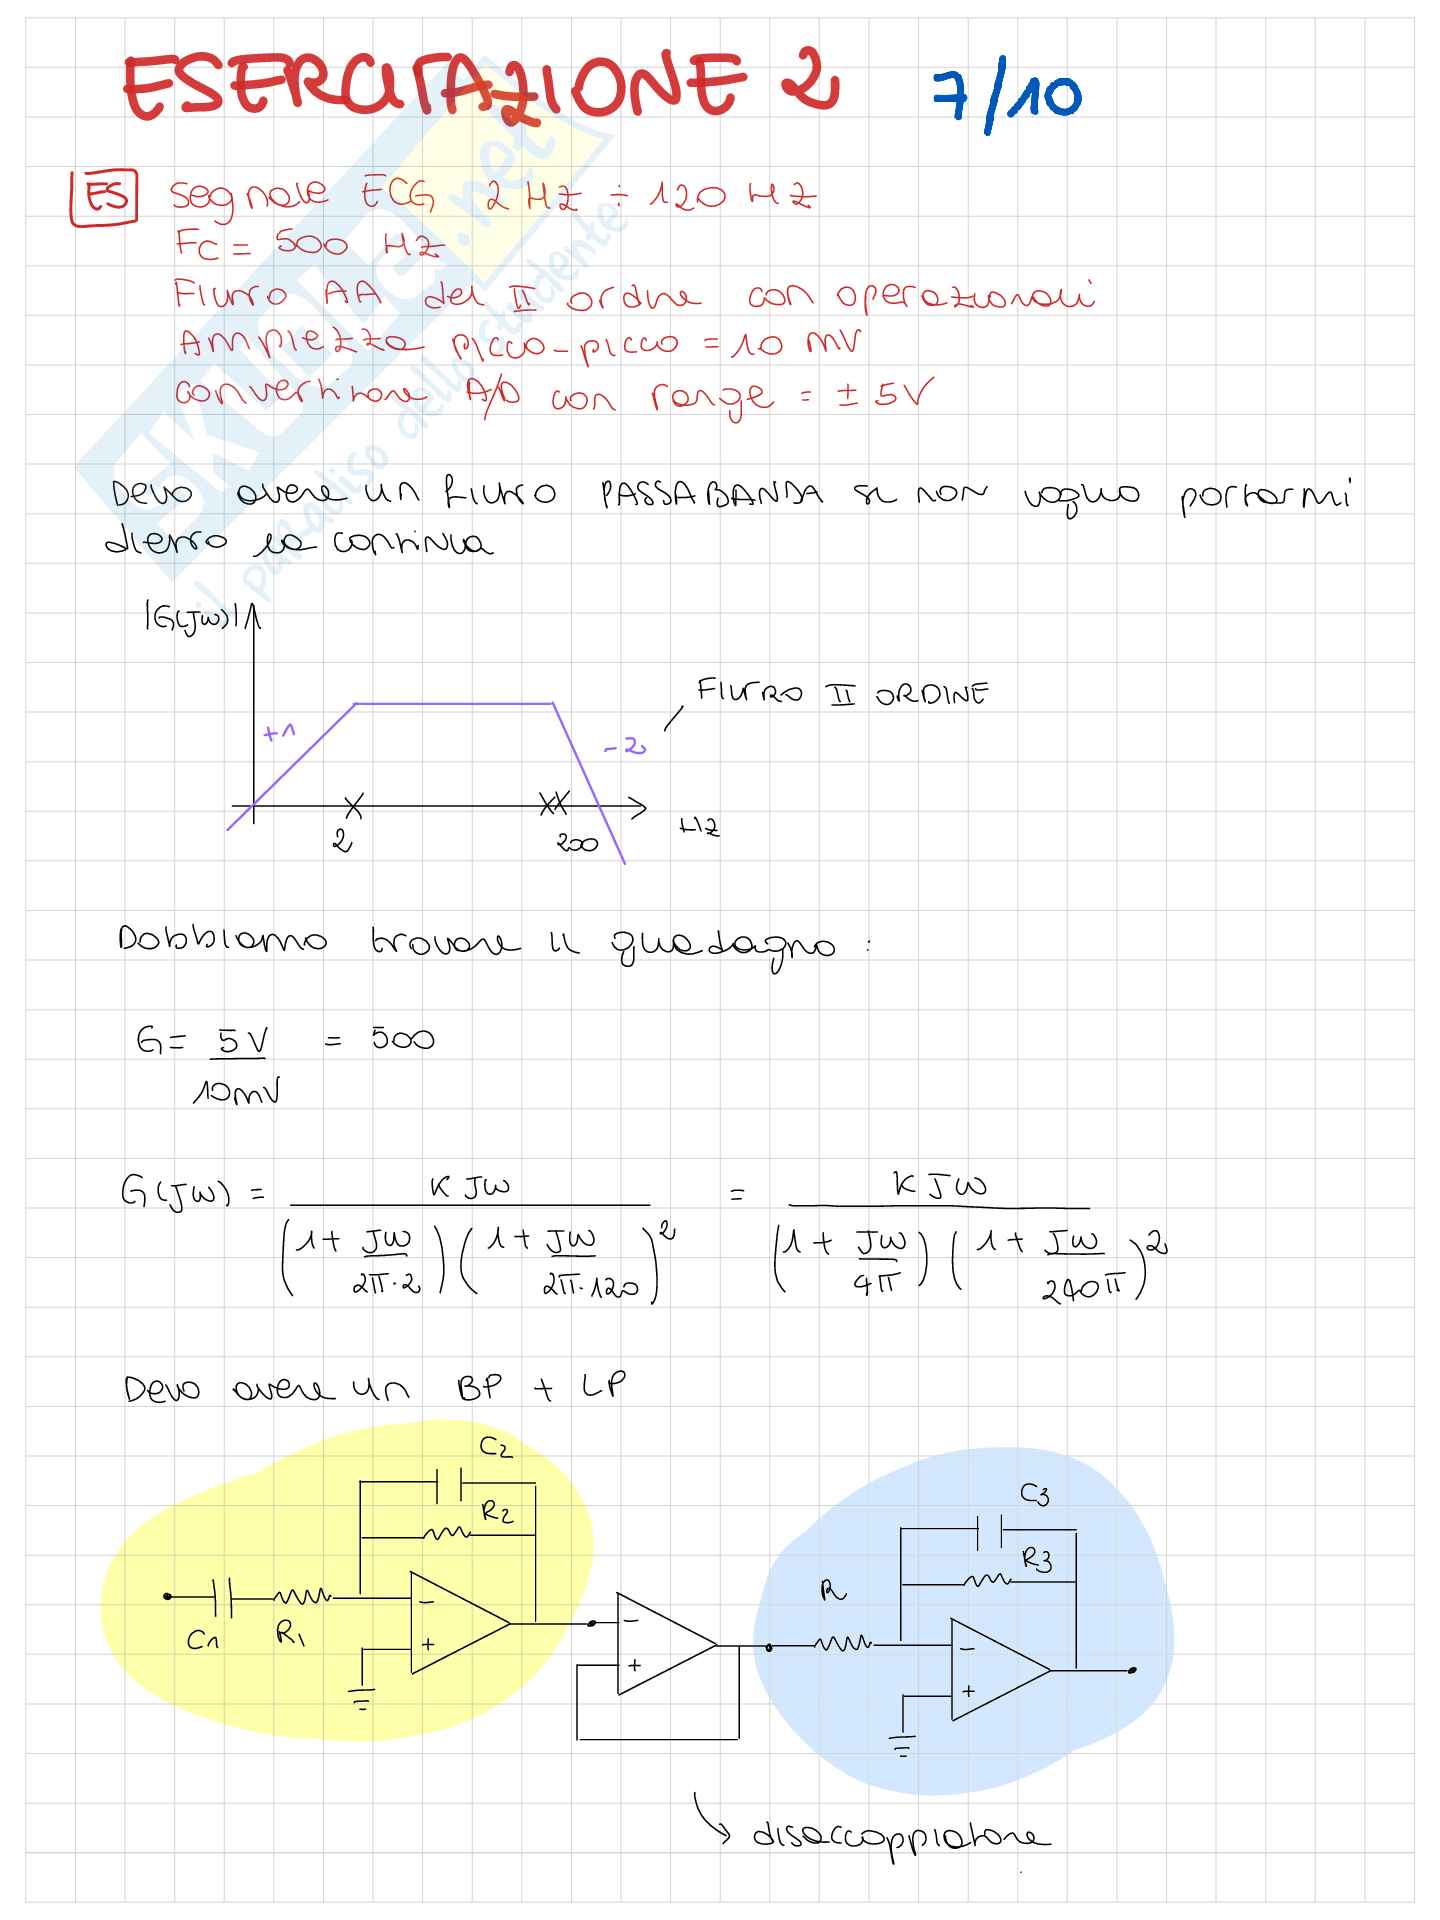 ESERCITAZIONE 2 7/10
ES segnale ECG 2 HZ ÷ 120 HZ
Fc = 500 HZ
Filtro AA del II ordine con operazionali
Ampiezza picco-picco = 10 mV
convertitore A/D con range = ± 5V
Devo avere un filtro PASSABANDA se non voglio portarmi
dietro la continua
|G(Jω)|
FILTRO II ORDINE
+1
-2
2
200
HZ
Dobbiamo trovare il guadagno :
G = 5V / 10mV = 500
G(Jω) = K Jω / (1 + Jω / 2π·2) (1 + Jω / 2π·120)² = K Jω / (1 + Jω / 4π) (1 + Jω / 240π)²
Devo avere un BP + LP
C2
R2
C1
R1
-
+
-
+
C3
R3
R
-
+
disaccoppiatore
SKUOLA.net
il paradiso dello studente